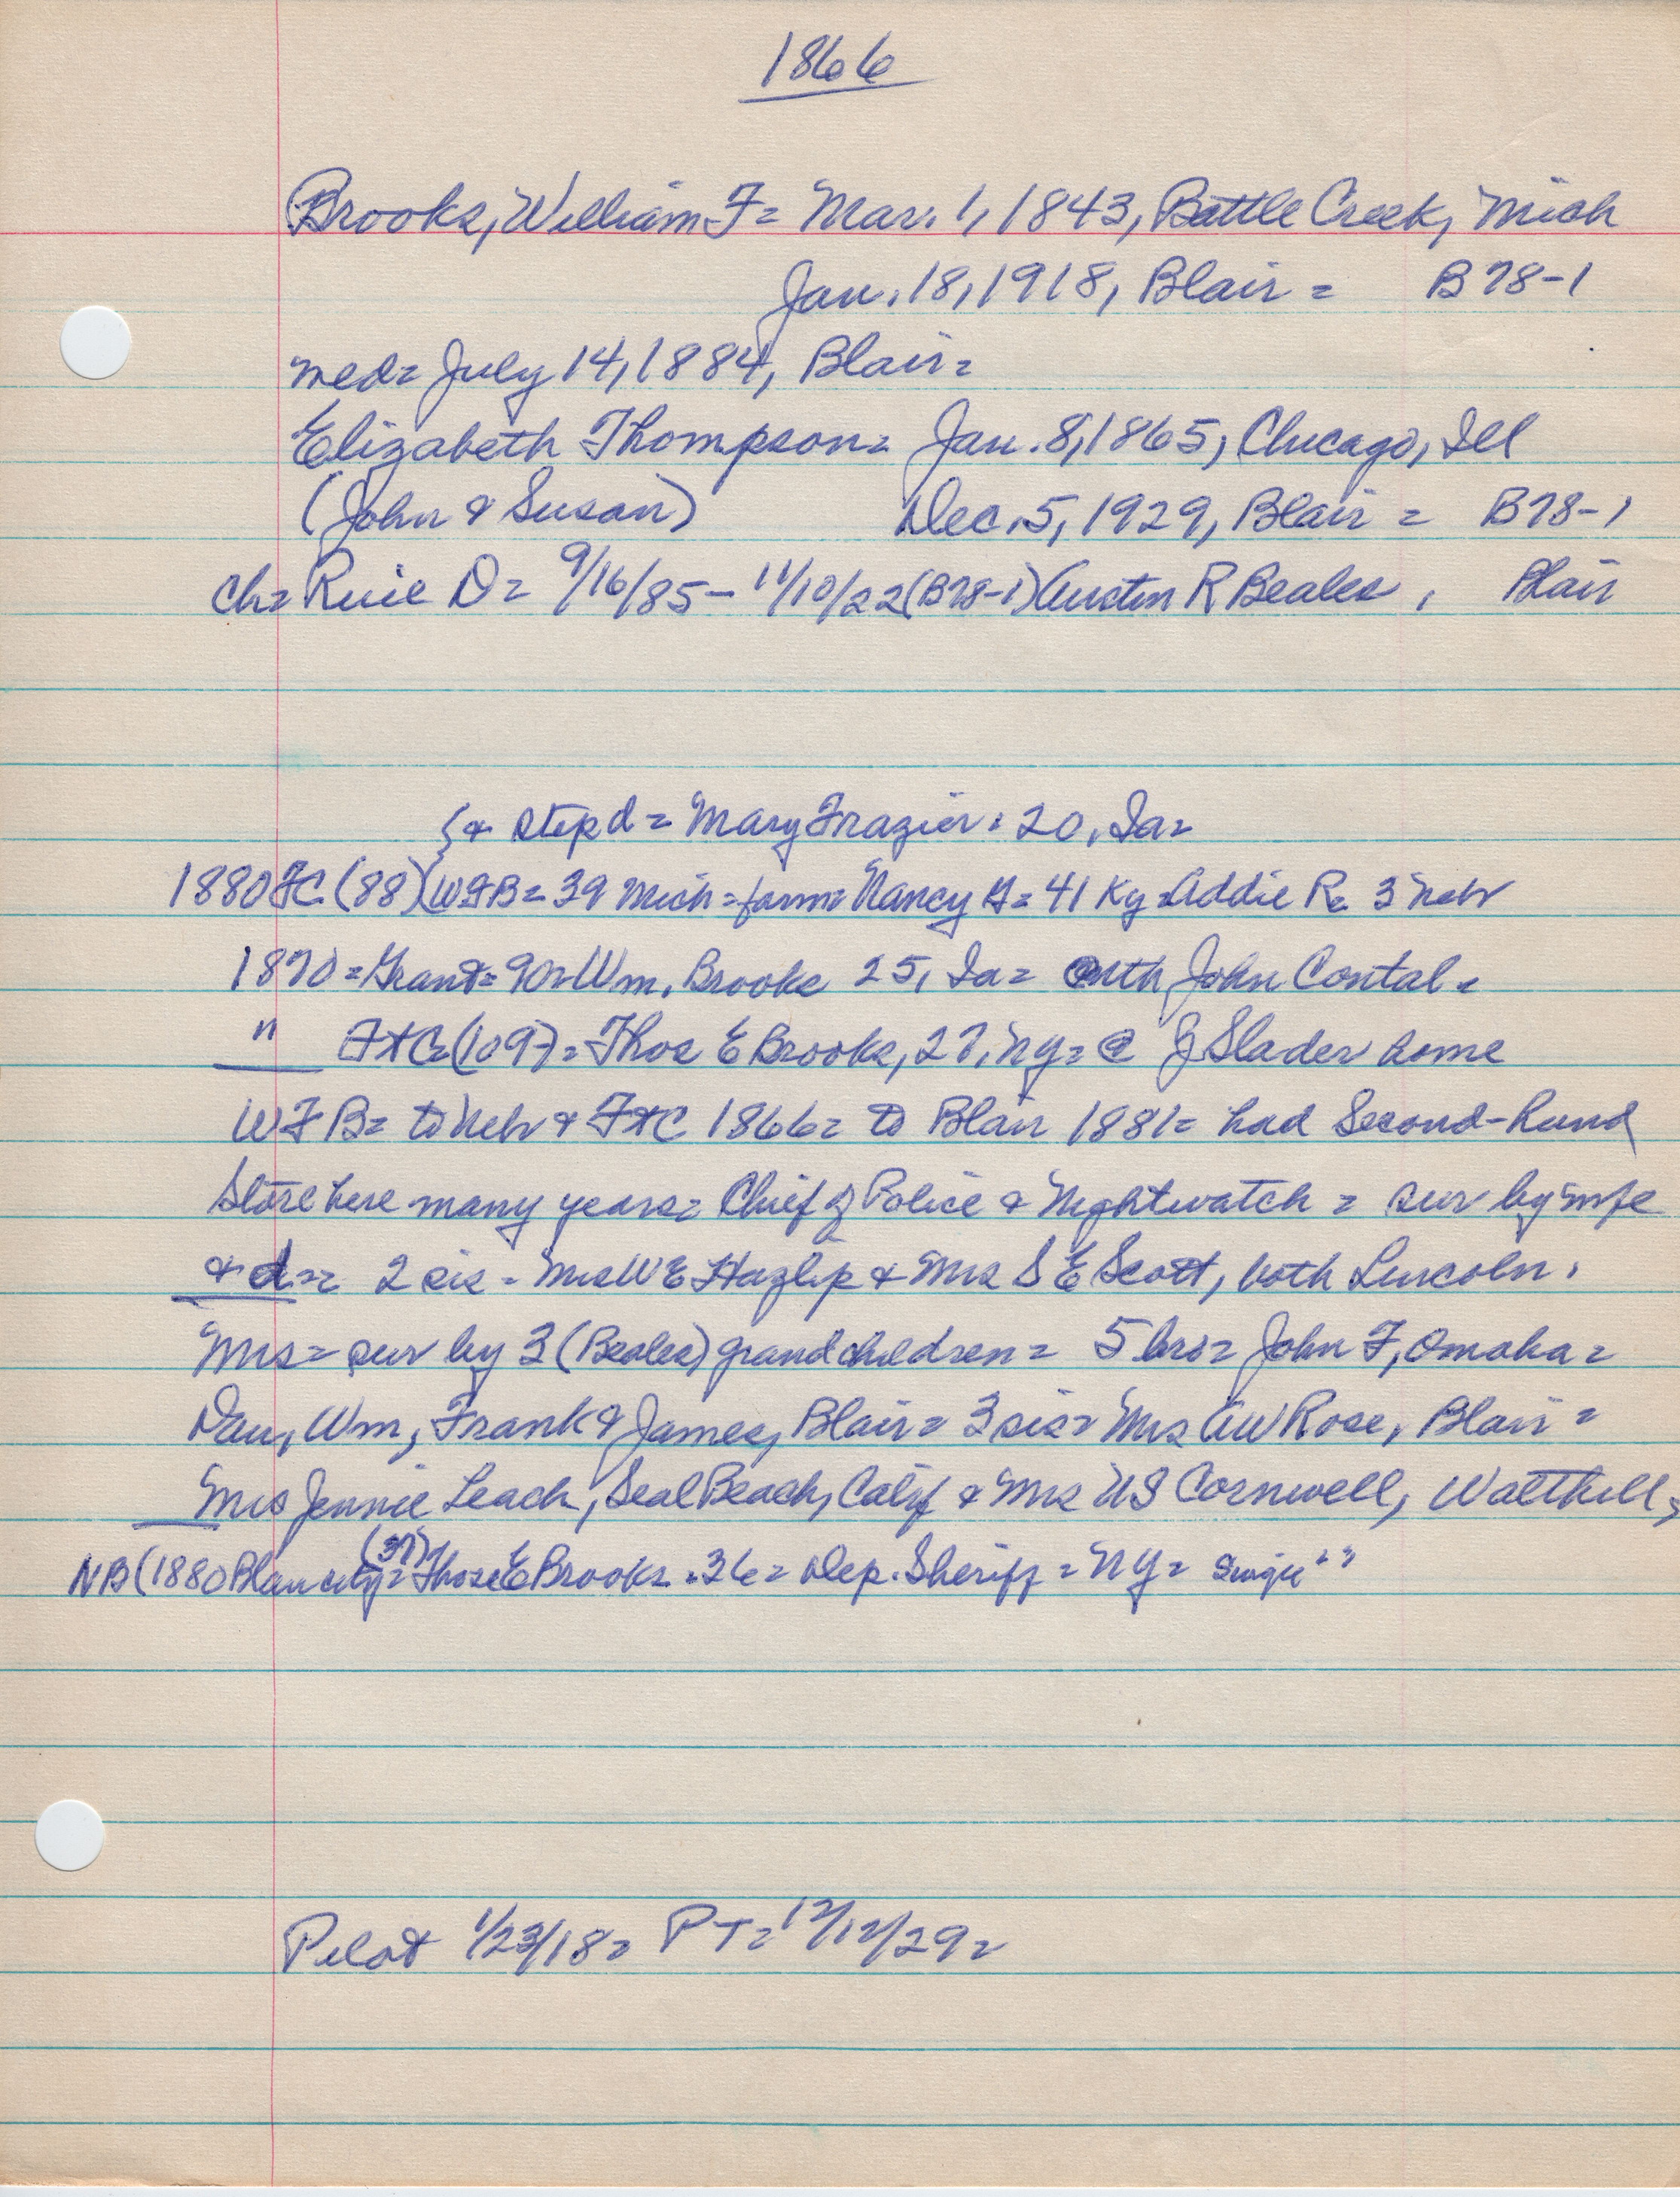 1866
Brooks, William F = Mar. 1, 1843, Battle Creek, Mich
Jan. 18, 1918, Blair = B78-1
med = July 14, 1884, Blair =
Elizabeth Thompson = Jan. 8, 1865, Chicago, Ill
(John & Susan) Dec. 5, 1929, Blair = B78-1
ch = D = 9/16/85 - 11/10/22 (B78-1) Austin R Beales, Blair
& step d = Mary Frazier. 20, Ia =
1880 FC (88) (WFB = 39 Mich = farm = Nancy = 41 Ky = Addie R = 3 Nebr
1870 = Grant = 90 = Wm. Brooks 25, Ia = John Contal =
" F+C = (109) = Thos E Brooks, 27, NY = @ J Slader home
WFB = to Nebr & F+C 1866 = to Blair 1881 = had Second-hand
Store here many years = Chief of Police & Nightwatch = sur by wife
& d = 2 sis - Mrs W E Hazlip & Mrs S E Scott, both Lincoln.
Mrs = sur by 3 (Beales) grandchildren = 5 bros = John F, Omaha =
Dan, Wm, Frank & James, Blair = 3 sis = Mrs AW Rose, Blair =
Mrs Jennie Leach, Seal Beach, Calif & Mrs US Cornwell, Walthill,
NB (1880 Blair city = (37) Thos E Brooks. 36 = Dep. Sheriff = NY =
Pilot 1/23/18 = PT = 12/12/29 =